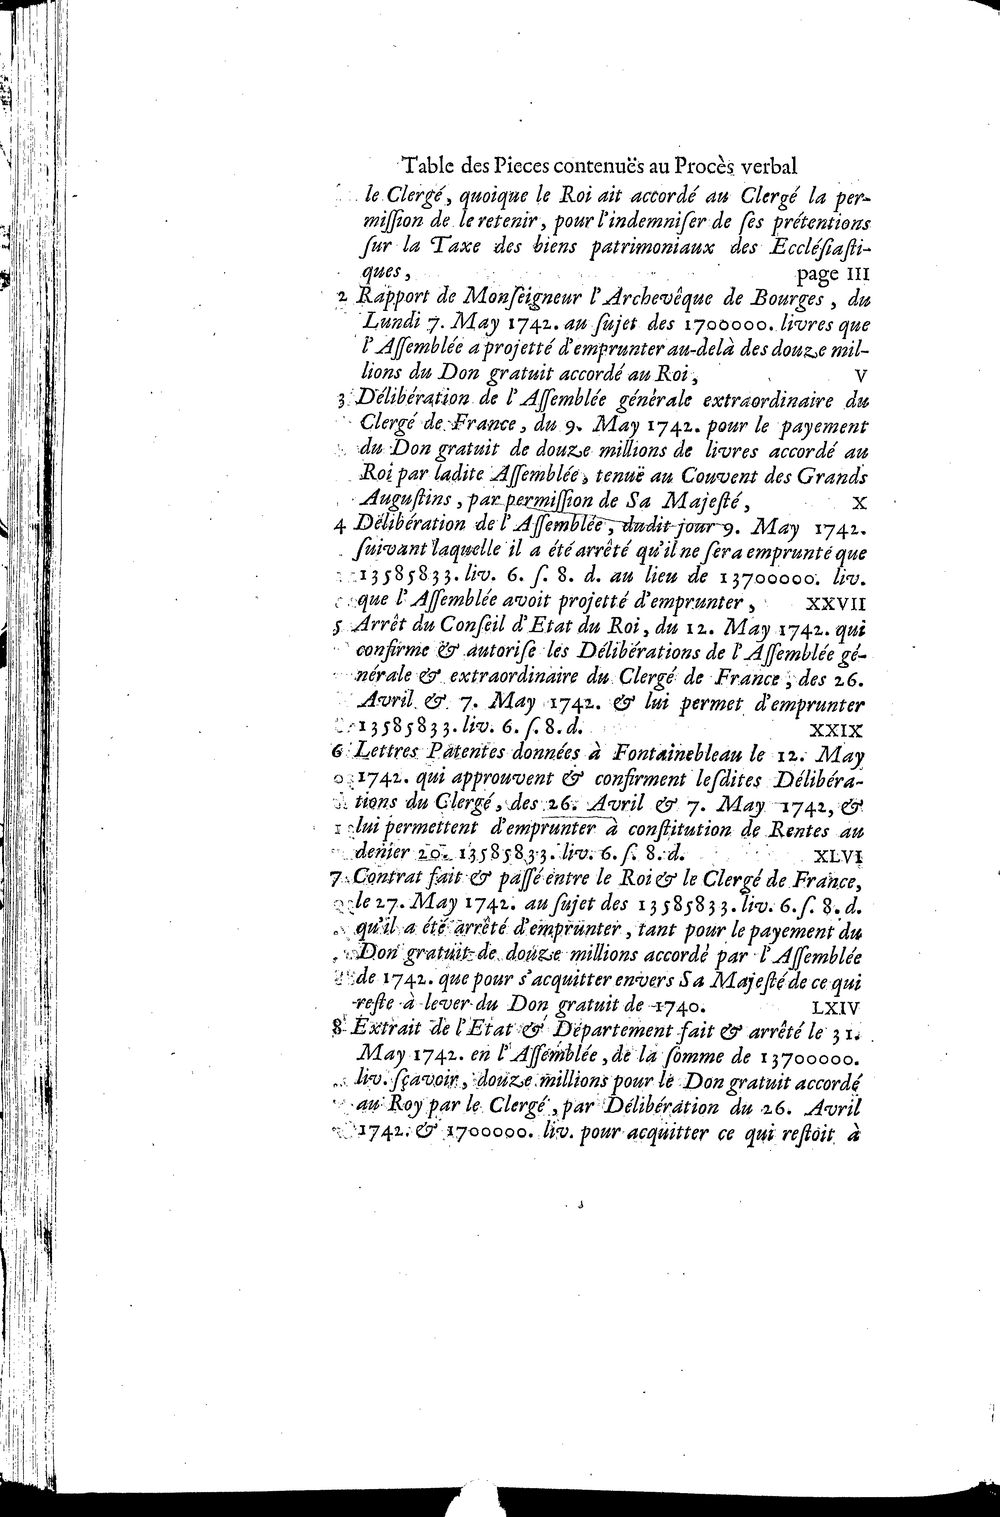 Table des Pieces contenuës au Procès verbal
le Clergé, quoique le Roi ait accordé au Clergé la per-
miſſion de le retenir, pour l'indemniſer de ſes prétentions
ſur la Taxe des biens patrimoniaux des Eccléſiaſti-
ques, page III
2 Rapport de Monſeigneur l'Archevêque de Bourges, du
Lundi 7. May 1742. au ſujet des 1700000. livres que
l'Aſſemblée a projetté d'emprunter au-delà des douze mil-
lions du Don gratuit accordé au Roi, V
3 Délibération de l'Aſſemblée générale extraordinaire du
Clergé de France, du 9. May 1742. pour le payement
du Don gratuit de douze millions de livres accordé au
Roi par ladite Aſſemblée, tenuë au Couvent des Grands
Auguſtins, par permiſſion de Sa Majeſté, X
4 Délibération de l'Aſſemblée, dudit jour 9. May 1742.
ſuivant laquelle il a été arrêté qu'il ne ſera emprunté que
13585833. liv. 6. ſ. 8. d. au lieu de 13700000. liv.
que l'Aſſemblée avoit projetté d'emprunter, XXVII
5 Arrêt du Conſeil d'Etat du Roi, du 12. May 1742. qui
confirme & autoriſe les Délibérations de l'Aſſemblée gé-
nérale & extraordinaire du Clergé de France, des 26.
Avril & 7. May 1742. & lui permet d'emprunter
13585833. liv. 6. ſ. 8. d. XXIX
6 Lettres Patentes données à Fontainebleau le 12. May
1742. qui approuvent & confirment leſdites Délibéra-
tions du Clergé, des 26. Avril & 7. May 1742, &
lui permettent d'emprunter à conſtitution de Rentes au
denier 20. 13585833. liv. 6. ſ. 8. d. XLVI
7 Contrat fait & paſſé entre le Roi & le Clergé de France,
le 27. May 1742. au ſujet des 13585833. liv. 6. ſ. 8. d.
qu'il a été arrêté d'emprunter, tant pour le payement du
Don gratuit de douze millions accordé par l'Aſſemblée
de 1742. que pour s'acquitter envers Sa Majeſté de ce qui
reſte à lever du Don gratuit de 1740. LXIV
8 Extrait de l'Etat & Département fait & arrêté le 31.
May 1742. en l'Aſſemblée, de la ſomme de 13700000.
liv. ſçavoir, douze millions pour le Don gratuit accordé
au Roy par le Clergé, par Délibération du 26. Avril
1742. & 1700000. liv. pour acquitter ce qui reſtoit à